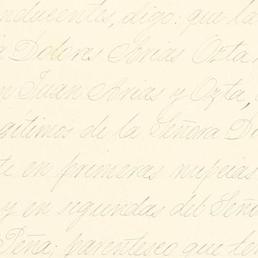 nducentes, digo: que la
a Dolores Arias Ozta
n Juan Arias y Ozta,
gitimos de la Señora D
te en primeras nupcias
y en segundas del Seño
Peña; parentesco que te